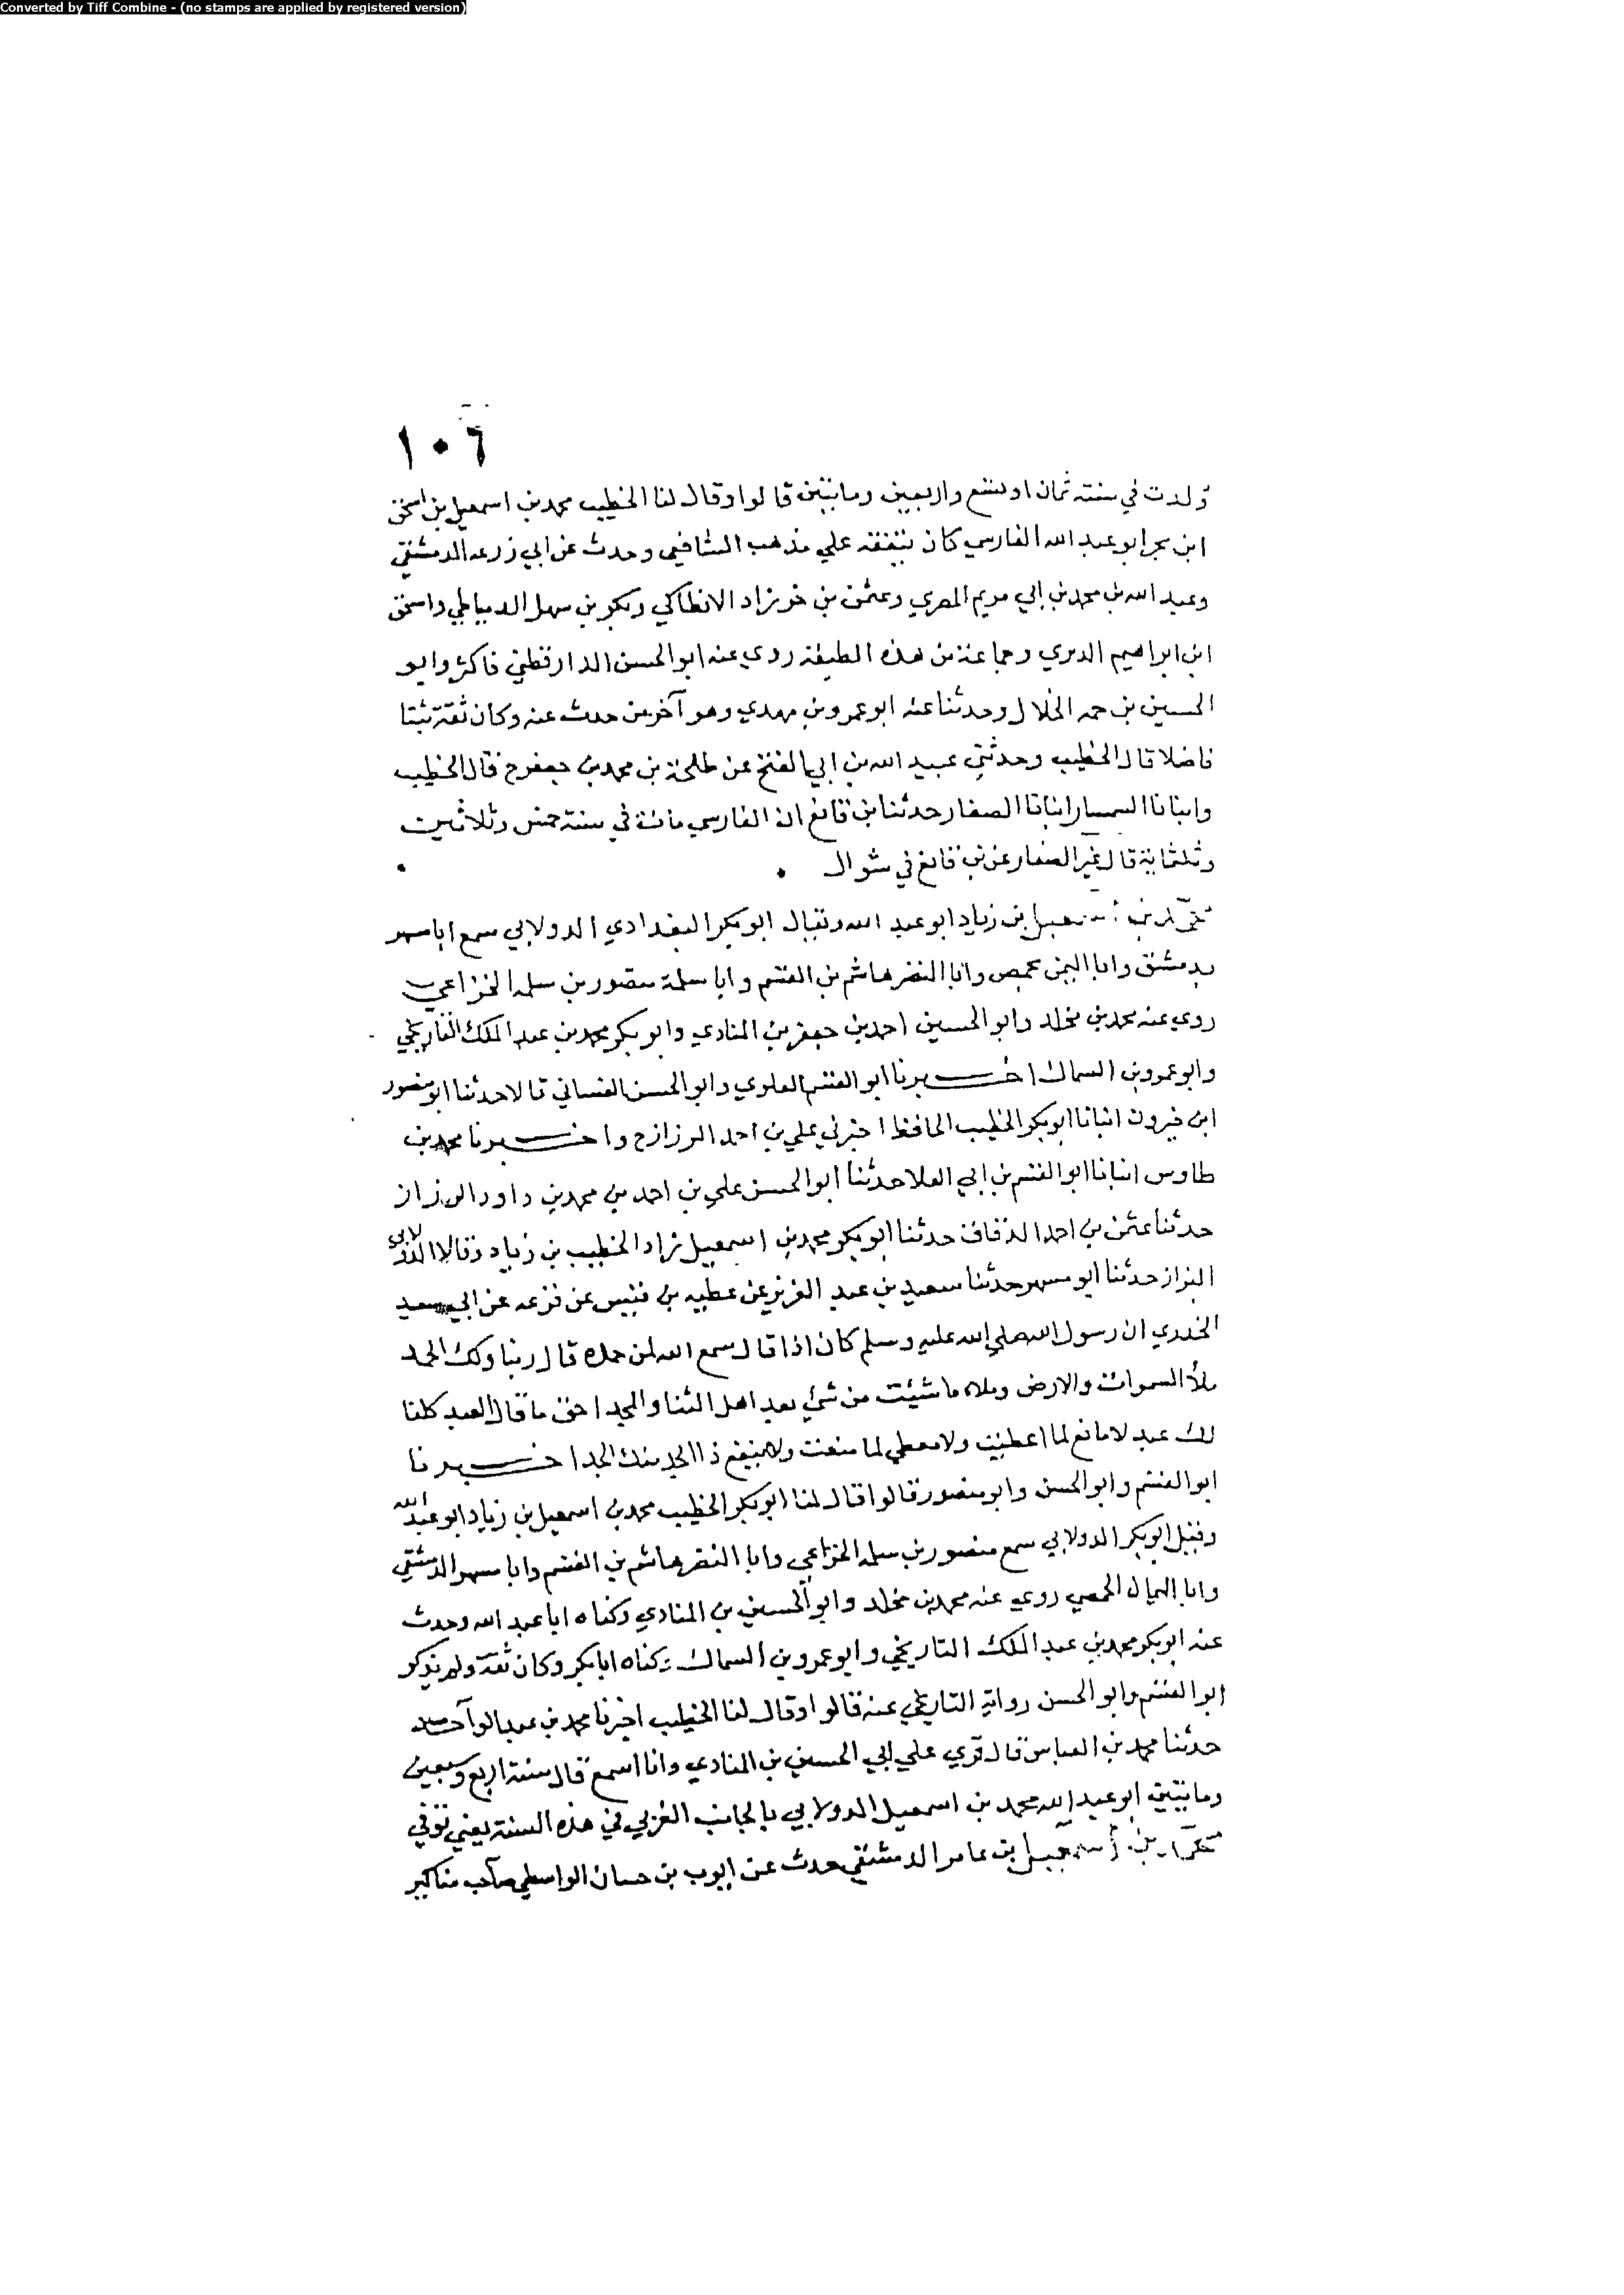 Converted by Tiff Combine - (no stamps are applied by registered version)
١٠٦
ولدت في سنة ثمان او تسع واربعين وماتين قالوا وقال لنا الخطيب محمد بن اسمعيل بن اسحق
ابن بحر ابو عبد الله الفارسي كان يتفقه علي مذهب الشافعي وحدث عن ابي زرعه الدمشقي
وعبد الله بن محمد بن ابي مريم المصري وعثمن بن خرزاد الانطاكي وبكر بن سهل الدمياطي واسحق
ابن ابراهيم الدبري وجماعة من هذه الطبقة روي عنه ابو الحسن الدارقطني فاكثر وابو
الحسين بن حمه الخلال وحدثنا عنه ابو عمرو بن مهدي وهو آخر من حدث عنه وكان ثقة ثبتا
فاضلا قال الخطيب وحدثني عبيد الله بن ابي الفتح عن طلحة بن محمد بن جعفر ح قال الخطيب
وانبانا السمسار انبانا الصفار حدثنا بن قانع ان الفارسي مات في سنة خمس وثلاثين
وثلثماية قال غير الصفار عن بن قانع في شوال
محمد بن اسمعيل بن زياد ابو عبد الله ويقال ابو بكر البغدادي الدولابي سمع ابا مسهر
بدمشق وابا اليمن بحمص وابا النضر هاشم بن القسم وابا سلمة منصور بن سلمه الخزاعي
روي عنه محمد بن مخلد وابو الحسين احمد بن جعفر بن المنادي وابو بكر محمد بن عبد الملك التاريخي
وابو عمرو بن السماك اخبرنا ابو القسم العلوي وابو الحسن الغساني قالا حدثنا ابو منصور
ابن خيرون انبانا ابو بكر الخطيب الحافظ اخبرني علي بن احمد الرزاز ح واخبرنا محمد بن
طاوس انبانا ابو القسم بن ابي العلا حدثنا ابو الحسن علي بن احمد بن محمد بن داود الرزاز
حدثنا عثمن بن احمد الدقاق حدثنا ابو بكر محمد بن اسمعيل زاد الخطيب بن زياد وقالا الدولابي
البزاز حدثنا ابو مسهر حدثنا سعيد بن عبد العزيز عن عطيه بن قيس عن قزعه عن ابي سعيد
الخدري ان رسول الله صلي الله عليه وسلم كان اذا قال سمع الله لمن حمده قال ربنا ولك الحمد
ملأ السموات والارض وملاء ما شيئت من شئ بعد اهل الثنا والمجد احق ما قال العبد كلنا
لك عبد لا مانع لما اعطيت ولا معطي لما منعت ولا ينفع ذا الجد منك الجد اخبرنا
ابو القسم وابو الحسن وابو منصور قالوا قال لنا ابو بكر الخطيب محمد بن اسمعيل بن زياد ابو عبد الله
وقيل ابو بكر الدولابي سمع منصور بن سلمه الخزاعي وابا النضر هاشم بن القسم وابا مسهر الدمشقي
وابا اليمان الحمصي روي عنه محمد بن مخلد وابو الحسين بن المنادي وكناه ابا عبد الله وحدث
عنه ابو بكر محمد بن عبد الملك التاريخي وابو عمرو بن السماك وكناه ابا بكر وكان ثقة ولم يذكر
ابو القسم وابو الحسن رواية التاريخي عنه قالوا وقال لنا الخطيب اخبرنا محمد بن عبد الواحد
حدثنا محمد بن العباس قال قري علي ابي الحسين بن المنادي وانا اسمع قال سنة اربع وسبعين
وماتين ابو عبد الله محمد بن اسمعيل الدولابي بالجانب الغربي في هذه السنة يعني توفي
محمد بن اسمعيل بن عامر الدمشقي حدث عن ايوب بن حسان الواسطي صاحب مناكير